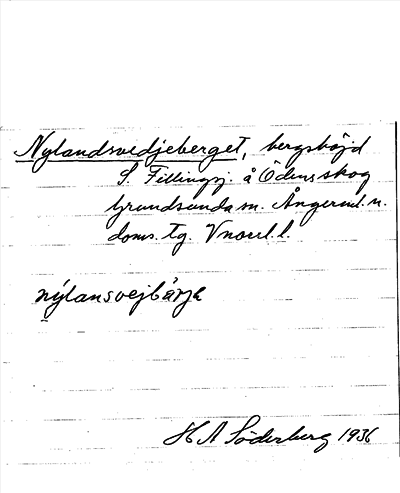 Nylandsvedjeberget, bergshöjd
S. Fillingsj. å Ödens skog
Grundsunda sn. Ångerml. n.
doms. tg. Vnorrl. l.
nýlansvejbärje
H A Söderberg 1936